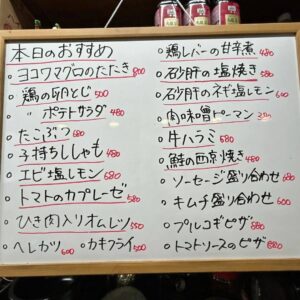 本日のおすすめ
・ヨコワマグロのたたき 800
・鶏の卵とじ 500
・〃 ポテトサラダ 480
・たこぶつ 680
・子持ちししゃも 480
・エビ塩レモン 680
・トマトのカプレーゼ 580
・ひき肉入りオムレツ 550
・ヘレカツ 600 ・カキフライ 500
・鶏レバーの甘辛煮 480
・砂肝の塩焼き 580
・砂肝のネギ塩レモン 600
・肉味噌ピーマン
・牛ハラミ 680
・鮭の西京焼き 480
・ソーセージ盛り合わせ 680
・キムチ盛り合わせ 600
・プルコギピザ 880
・トマトソースのピザ 880